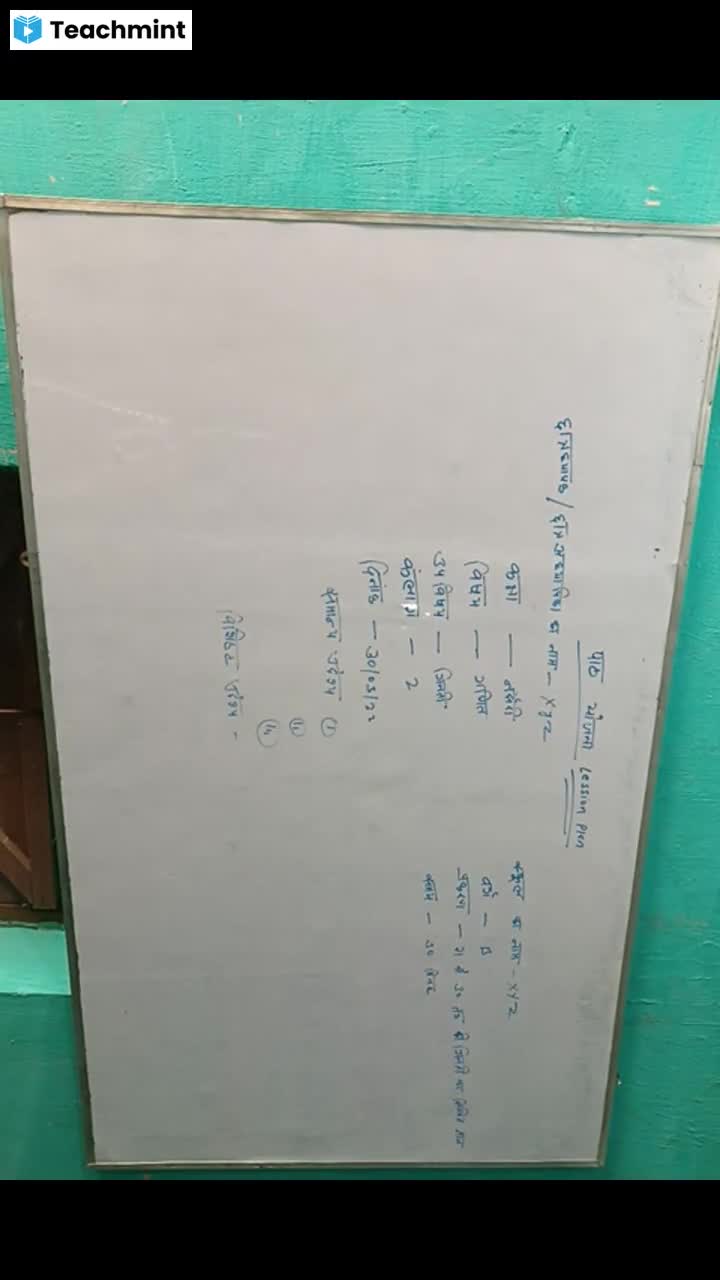 Teachmint
पाठ योजना Lession Plan
छात्राध्यापक / छात्राअध्यापिका का नाम - xyz
स्कूल का नाम - XYZ
कक्षा — नर्सरी
वर्ग - B
विषय — गणित
प्रकरण - 21 से 30 तक की गिनती का
उपविषय — गिनती
समय - 30 मिनट
कालांश - 2
दिनांक - 30/03/22
सामान्य उद्देश्य (i)
(ii)
(iii)
विशिष्ट उद्देश्य -